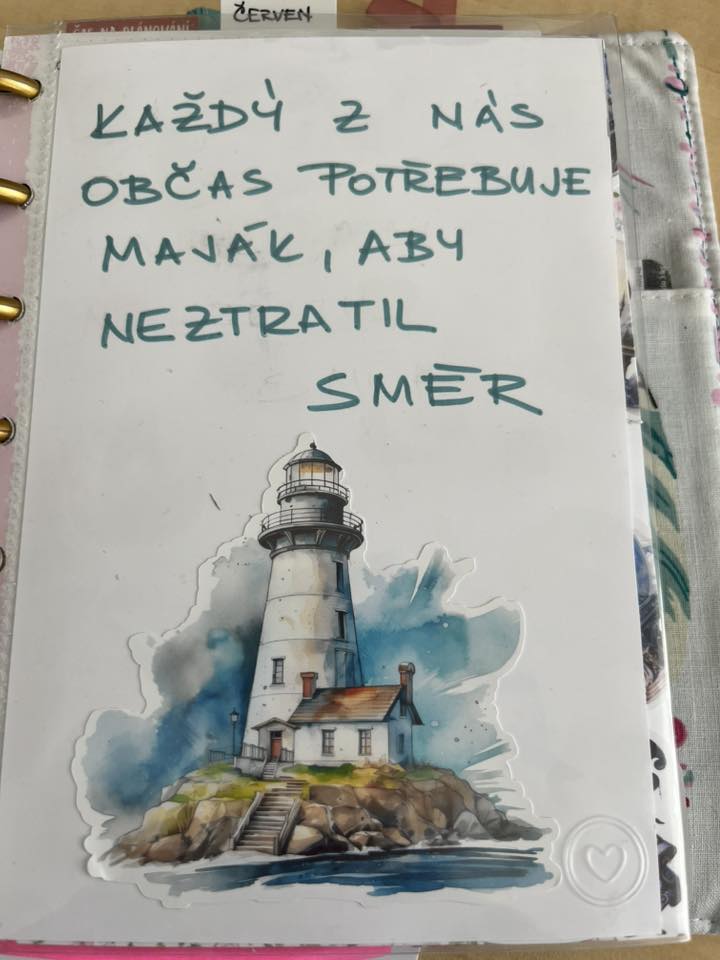 ČERVEN
ČAS NA PLÁNOVÁNÍ
KAŽDÝ Z NÁS
OBČAS POTŘEBUJE
MAJÁK, ABY
NEZTRATIL
SMĚR